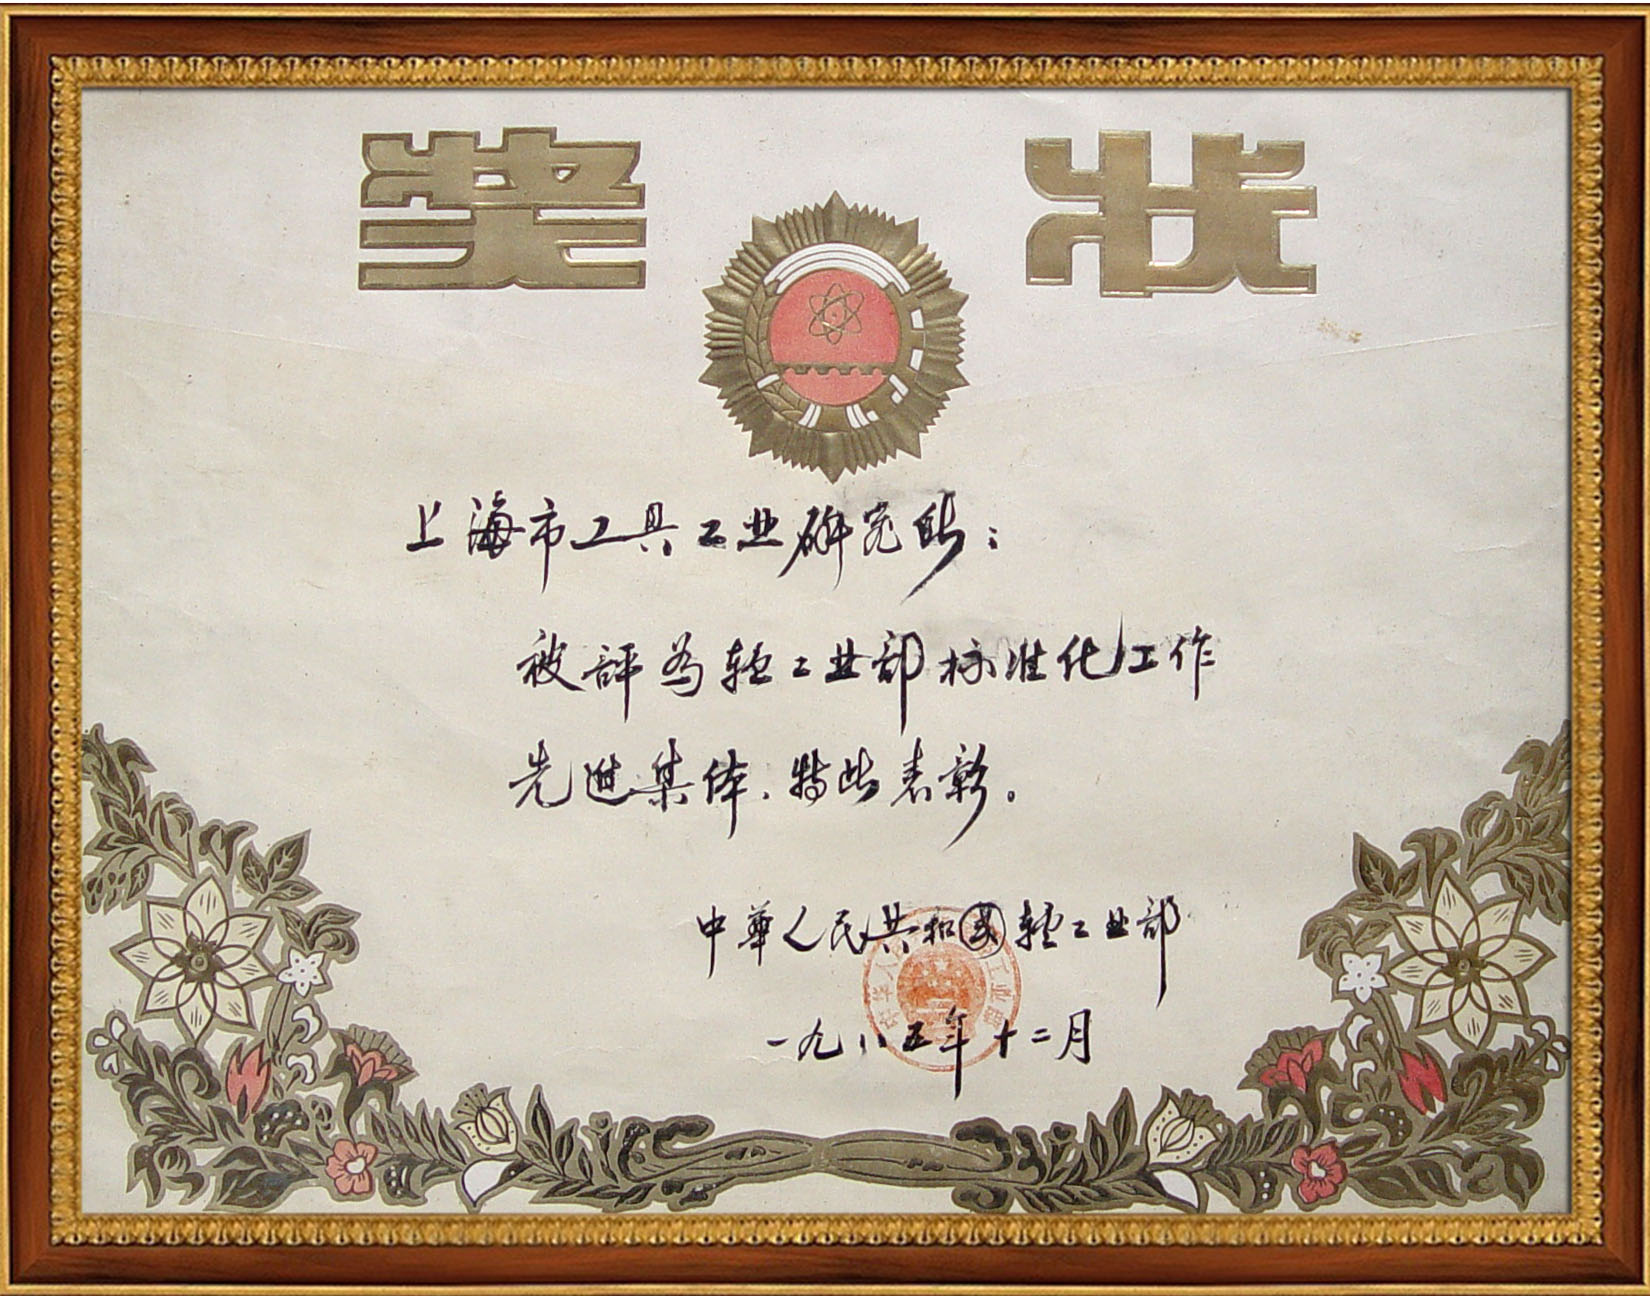 奖状
上海市工具工业研究所：
被評为轻工业部标准化工作
先进集体、特此表彰。
中華人民共和国轻工业部
一九八五年十二月